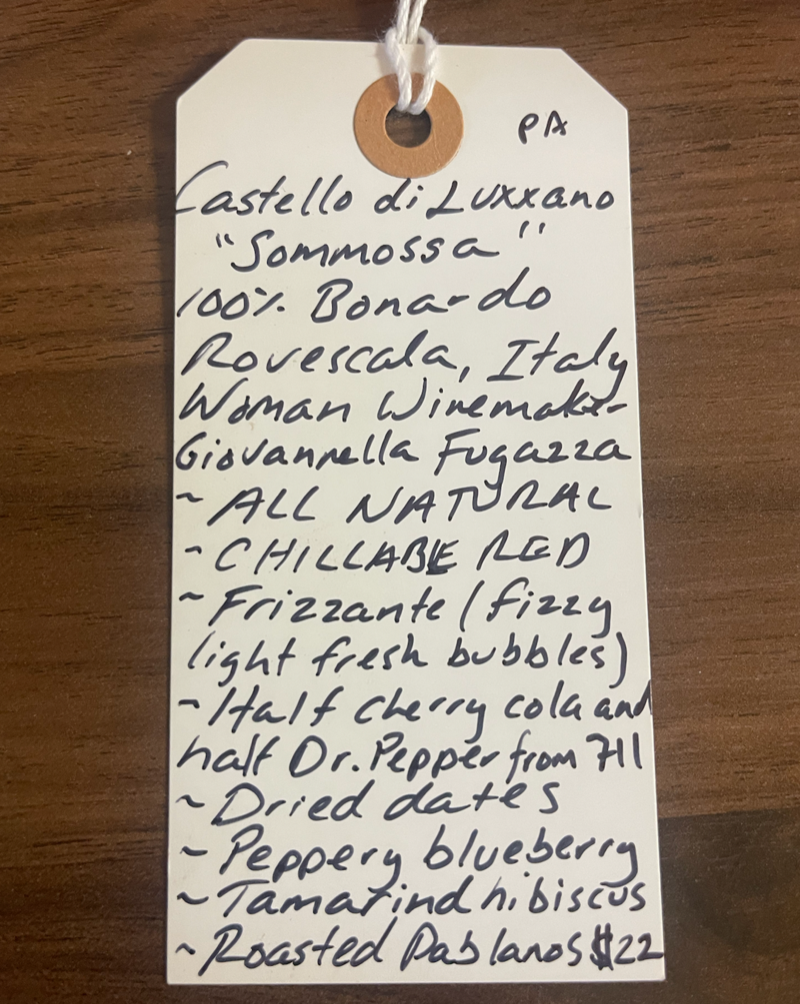 PA
Castello di Luxxano
"Sommossa"
100% Bonardo
Rovescala, Italy
Woman Winemaker
Giovannella Fugazza
~ ALL NATURAL
~ CHILLABLE RED
~ Frizzante (fizzy
light fresh bubbles)
~ Half cherry cola and
half Dr. Pepper from 711
~ Dried dates
~ Peppery blueberry
~ Tamarind hibiscus
~ Roasted Pablanos $22